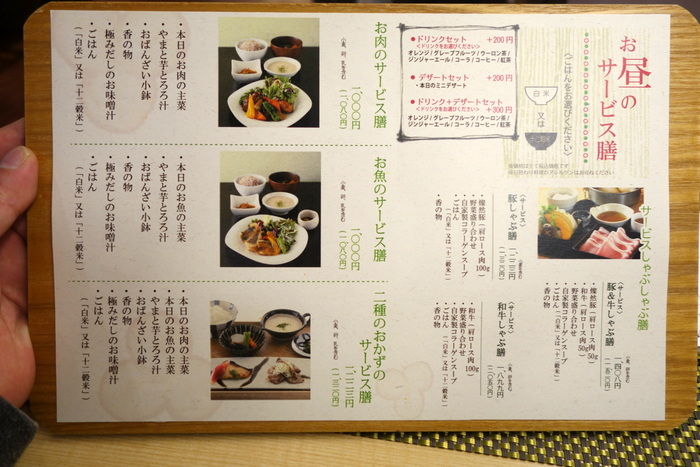 お昼の
サービス膳
〈ごはんをお選びください〉
白米
又は
十二穀米
●ドリンクセット +200円
<ドリンクをお選びください>
オレンジ/グレープフルーツ/ウーロン茶/
ジンジャーエール/コーラ/コーヒー/紅茶
●デザートセット +200円
・本日のミニデザート
●ドリンク+デザートセット +300円
<ドリンクをお選びください>
オレンジ/グレープフルーツ/ウーロン茶/
ジンジャーエール/コーラ/コーヒー/紅茶
サービスしゃぶしゃぶ膳
〈サービス〉
豚&牛しゃぶ膳
一、四〇八円
・燦然豚(肩ロース肉)50g
・和牛(肩ロース肉)50g
・野菜盛り合わせ
・自家製コラーゲンスープ
・ごはん
(「白米」又は「十二穀米」)
・香の物
〈サービス〉
豚しゃぶ膳
・燦然豚(肩ロース肉)100g
・野菜盛り合わせ
・自家製コラーゲンスープ
・ごはん
(「白米」又は「十二穀米」)
・香の物
〈サービス〉
和牛しゃぶ膳
一、八九九円
(二、〇五〇円)
・和牛(肩ロース肉)100g
・野菜盛り合わせ
・自家製コラーゲンスープ
・ごはん
(「白米」又は「十二穀米」)
・香の物
お肉のサービス膳
一、〇〇〇円
(一、〇八〇円)
・本日のお肉の主菜
・やまと芋とろろ汁
・おばんざい小鉢
・香の物
・極みだしのお味噌汁
・ごはん
(「白米」又は「十二穀米」)
お魚のサービス膳
一、〇〇〇円
(一、〇八〇円)
・本日のお魚の主菜
・やまと芋とろろ汁
・おばんざい小鉢
・香の物
・極みだしのお味噌汁
・ごはん
(「白米」又は「十二穀米」)
二種のおかずの
サービス膳
一、二二三円
(一、三二〇円)
・本日のお肉の主菜
・本日のお魚の主菜
・やまと芋とろろ汁
・おばんざい小鉢
・香の物
・極みだしのお味噌汁
・ごはん
(「白米」又は「十二穀米」)